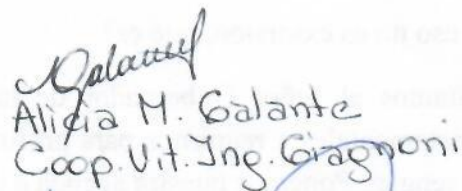 Galante
Alicia M. Galante
Coop. Vit. Ing. Giagnoni